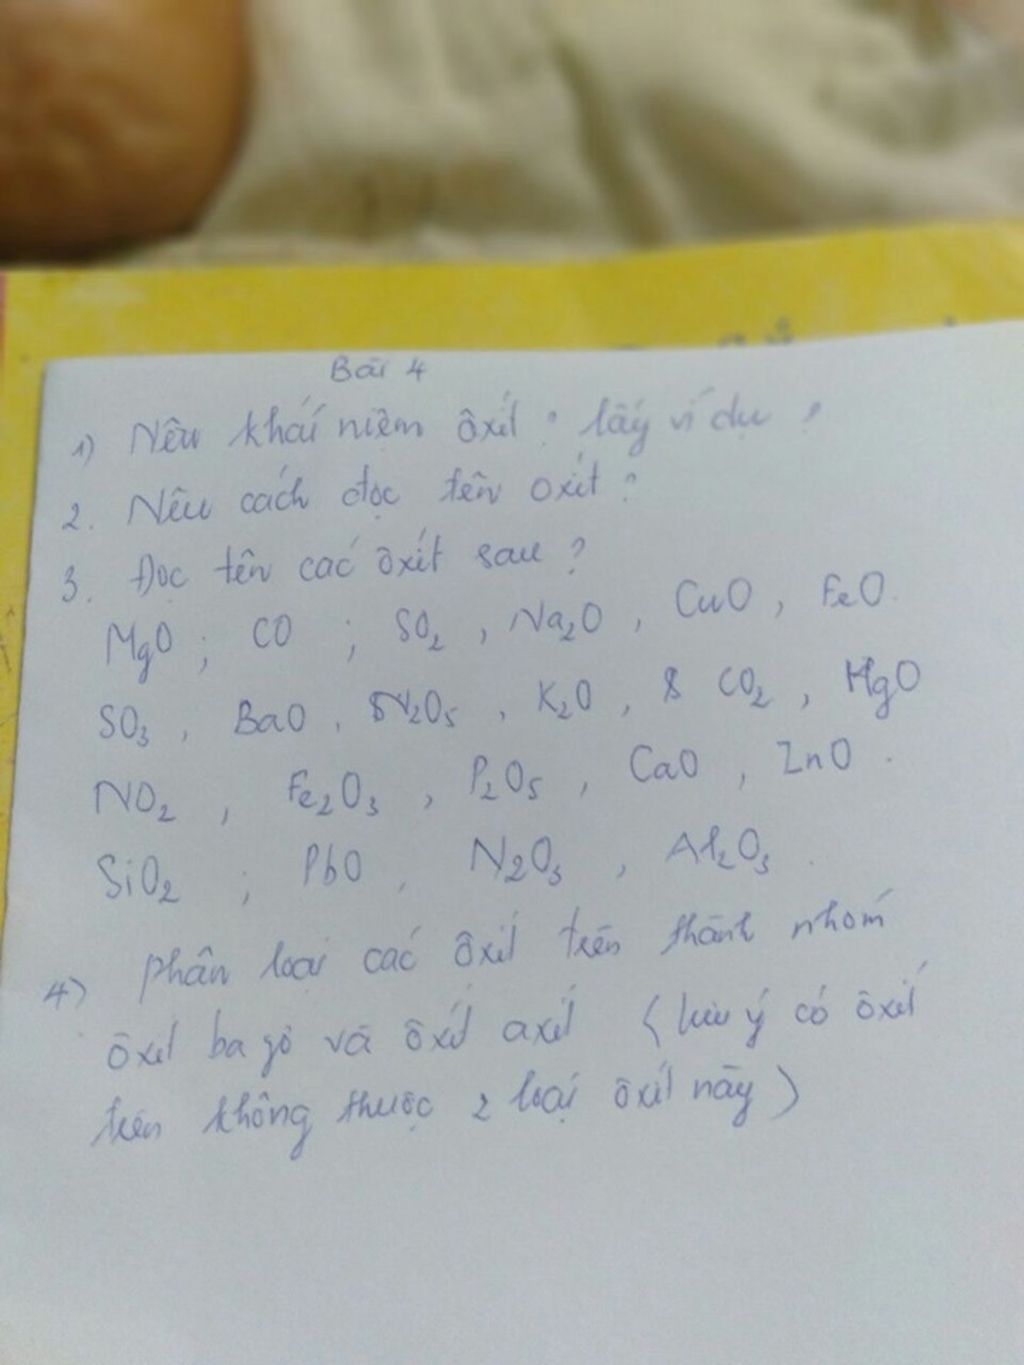 Bài 4
1) Nêu khái niệm ôxit ? lấy ví dụ ?
2. Nêu cách đọc tên oxit ?
3. Đọc tên các ôxit sau ?
MgO ; CO ; SO2 , Na2O , CuO , FeO.
SO3 , BaO , N2O5 , K2O , CO2 , HgO
NO2 , Fe2O3 , P2O5 , CaO , ZnO .
SiO2 ; PbO , N2O3 , Al2O3 .
4) phân loại các ôxit trên thành nhóm
ôxit bazơ và ôxit axit ( lưu ý có ôxit
trên không thuộc 2 loại ôxit này )